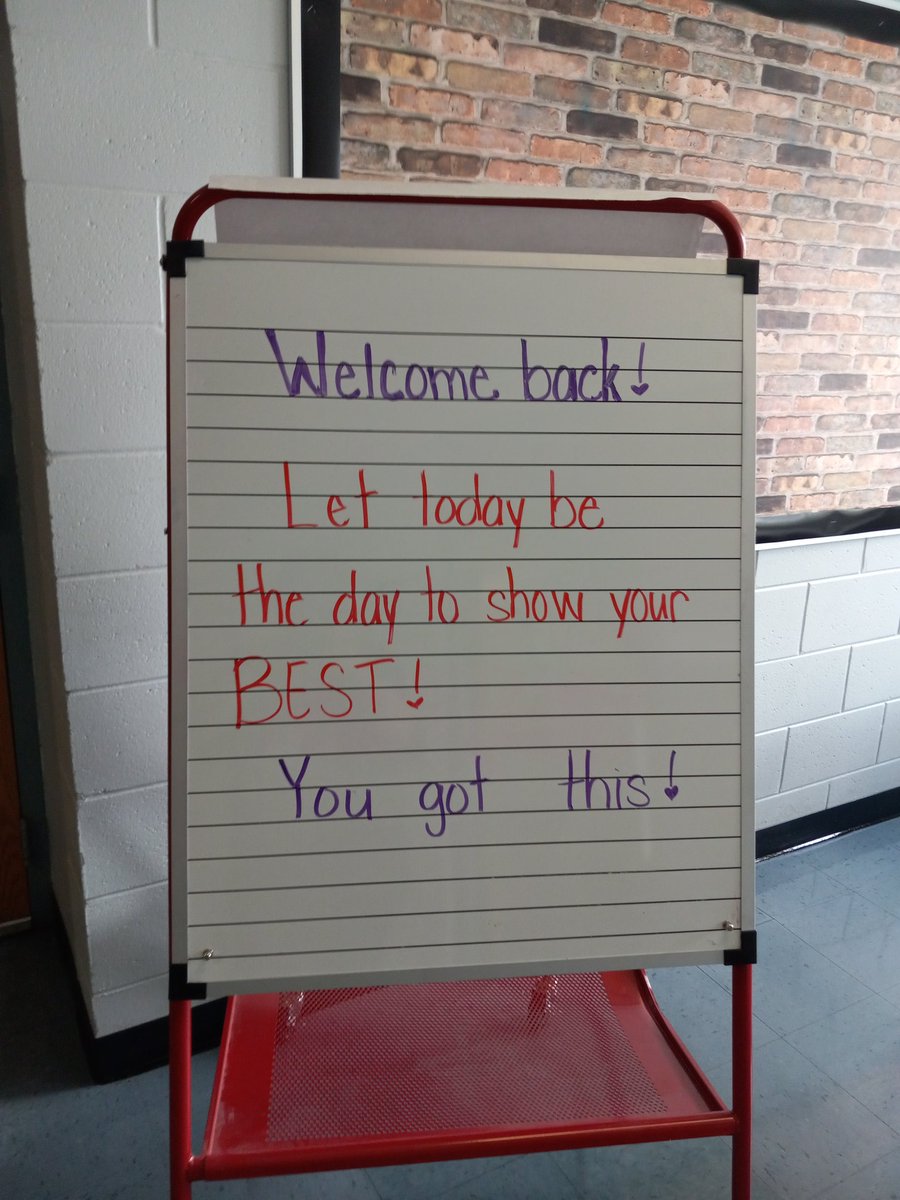 Welcome back!
Let today be
the day to show your
BEST!
You got this!